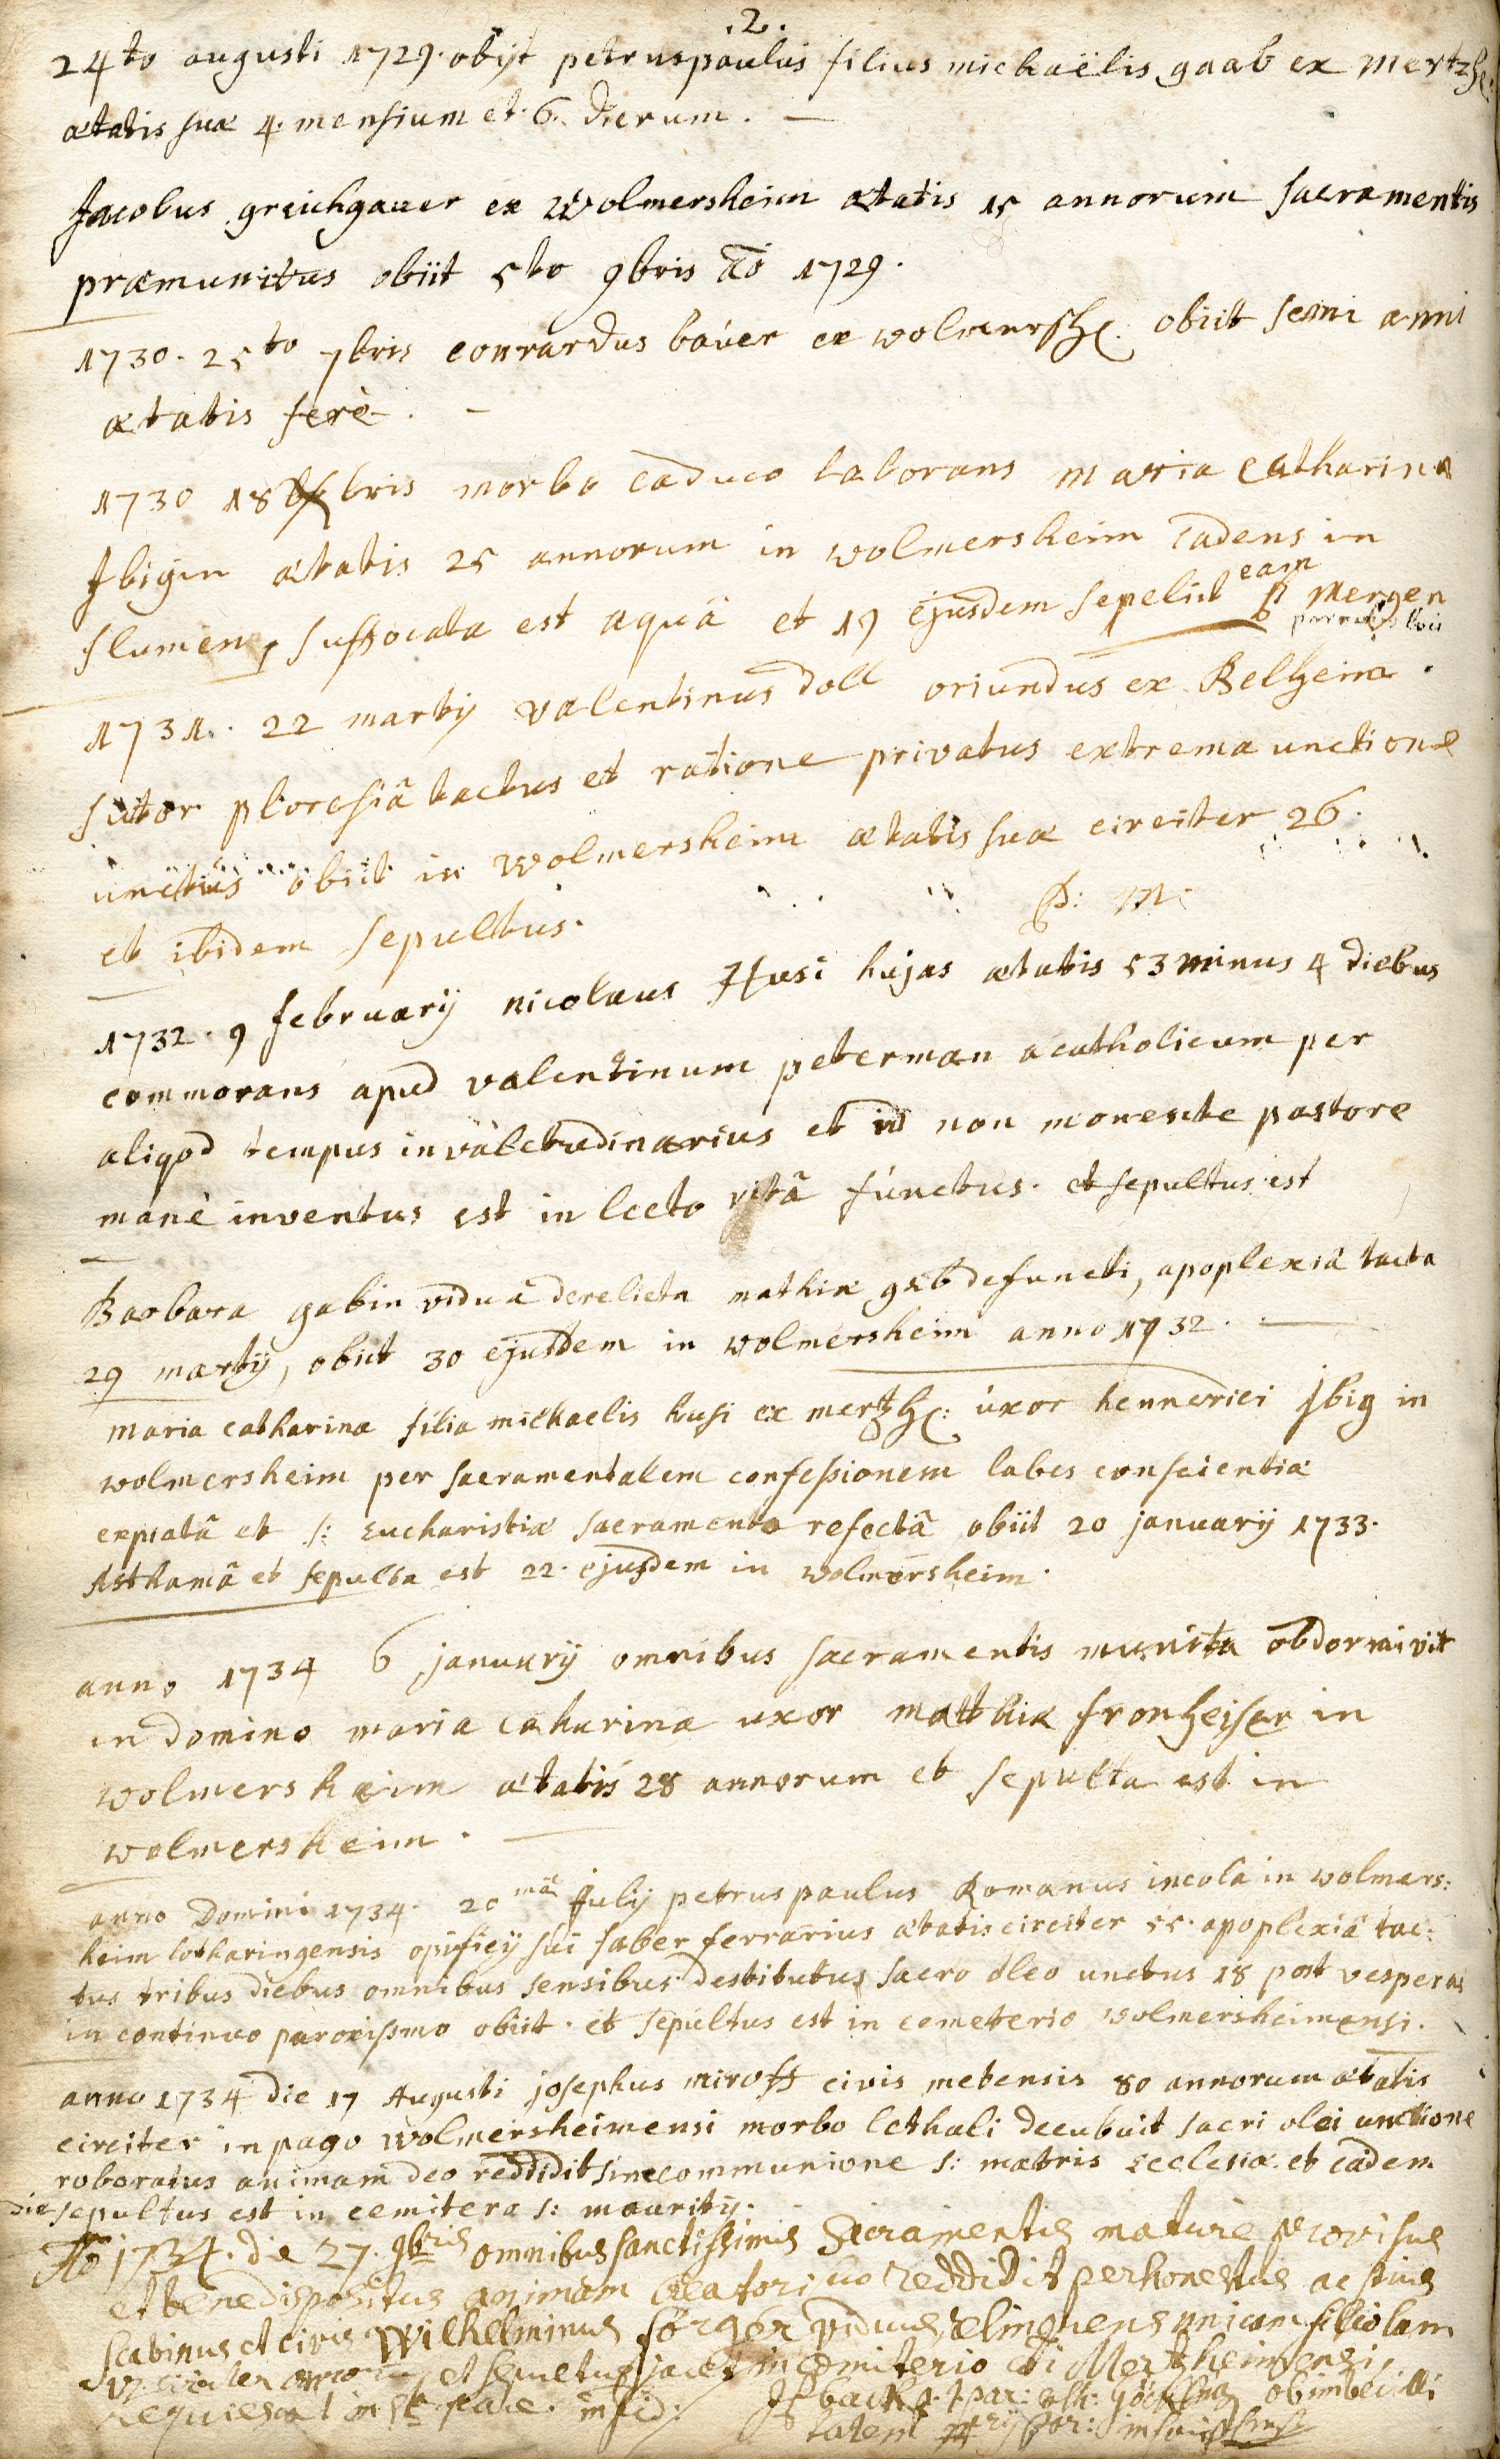 .2.
24to augusti 1729. obijt petrus paulus filius michaëlis gaab ex Mertzh:
ætatis suæ 4. mensium et 6. dierum. —
Jacobus greichgauer ex Wolmersheim ætatis 15 annorum sacramentis
præmunitus obiit 5to 9bris ao 1729.
1730. 25to 7bris conrardus bauer ex wolmersh: obiit semi anni
ætatis ferè. —
1730 18 bris morbo caduco laborans maria catharina
Jbigin ætatis 25 annorum in wolmersheim cadens in
flumen, suffocata est aquâ et 19 ejusdem sepeliit eam p Mergen
1731. 22 martij valentinus doll oriundus ex Belheim.
sutor ploresiâ tactus et ratione privatus extrema unctione
unctus obiit in wolmersheim ætatis suæ circiter 26.
et ibidem sepultus. P: M:
1732. 9 february nicolaus Husi hujas ætatis 53 minus 4 diebus
commorans apud valentinum peterman acatholicum per
aliqod tempus invaletudinarius et id non monente pastore
manè inventus est in lecto vitâ functus. et sepultus est
Barbara gabin viduâ derelicta mathiæ gab defuncti, apoplexiâ tacta
29 martij, obiit 30 ejusdem in wolmersheim anno 1732. —
maria catharina filia michaelis husi ex mertzh: uxor hennerici Jbig in
wolmersheim per sacramentalem confessionem labes conscientiæ
expiatâ et s: Eucharistiæ sacramento refectâ obiit 20 january 1733.
Asthamâ et sepulta est 22. ejusdem in wolmersheim.
anno 1734 6 january omnibus sacramentis munita obdormivit
in domino maria catharina uxor matthiæ fronheiser in
wolmersheim ætatis 28 annorum et sepulta est in
wolmersheim. —
anno Domini 1734. 20mâ Julij petrus paulus Romanus incola in wolmers:
heim lotharingensis opificij sui faber ferrarius ætatis circiter 55. apoplexiâ tac:
tus tribus diebus omnibus sensibus destitutus sacro oleo unctus 18 post vesperas
in continuo paroxismo obiit. et sepultus est in cemeterio wolmersheimensi.
anno 1734 die 17 Augusti josephus miroff civis metensis 80 annorum ætatis
circiter in pago wolmersheimensi morbo lethali decubuit sacri olei unctione
roboratus animam deo reddidit sine communione s: matris Ecclesiæ et eadem
die sepultus est in cemitera s: mauritij.
Ao 1734. die 27. 9bris omnibus sanctissimis Sacramentis mature provisus
et bene dispositus animam Creatori suo reddidit perhonestus ac pius
scabinus et civis Wilhelminus sorger viduus, relinquens unicam filiolam
circiter et sepultus jacet in comiterio Mertzheimensi.
Requiescat in pace. obimbecilli
tatem